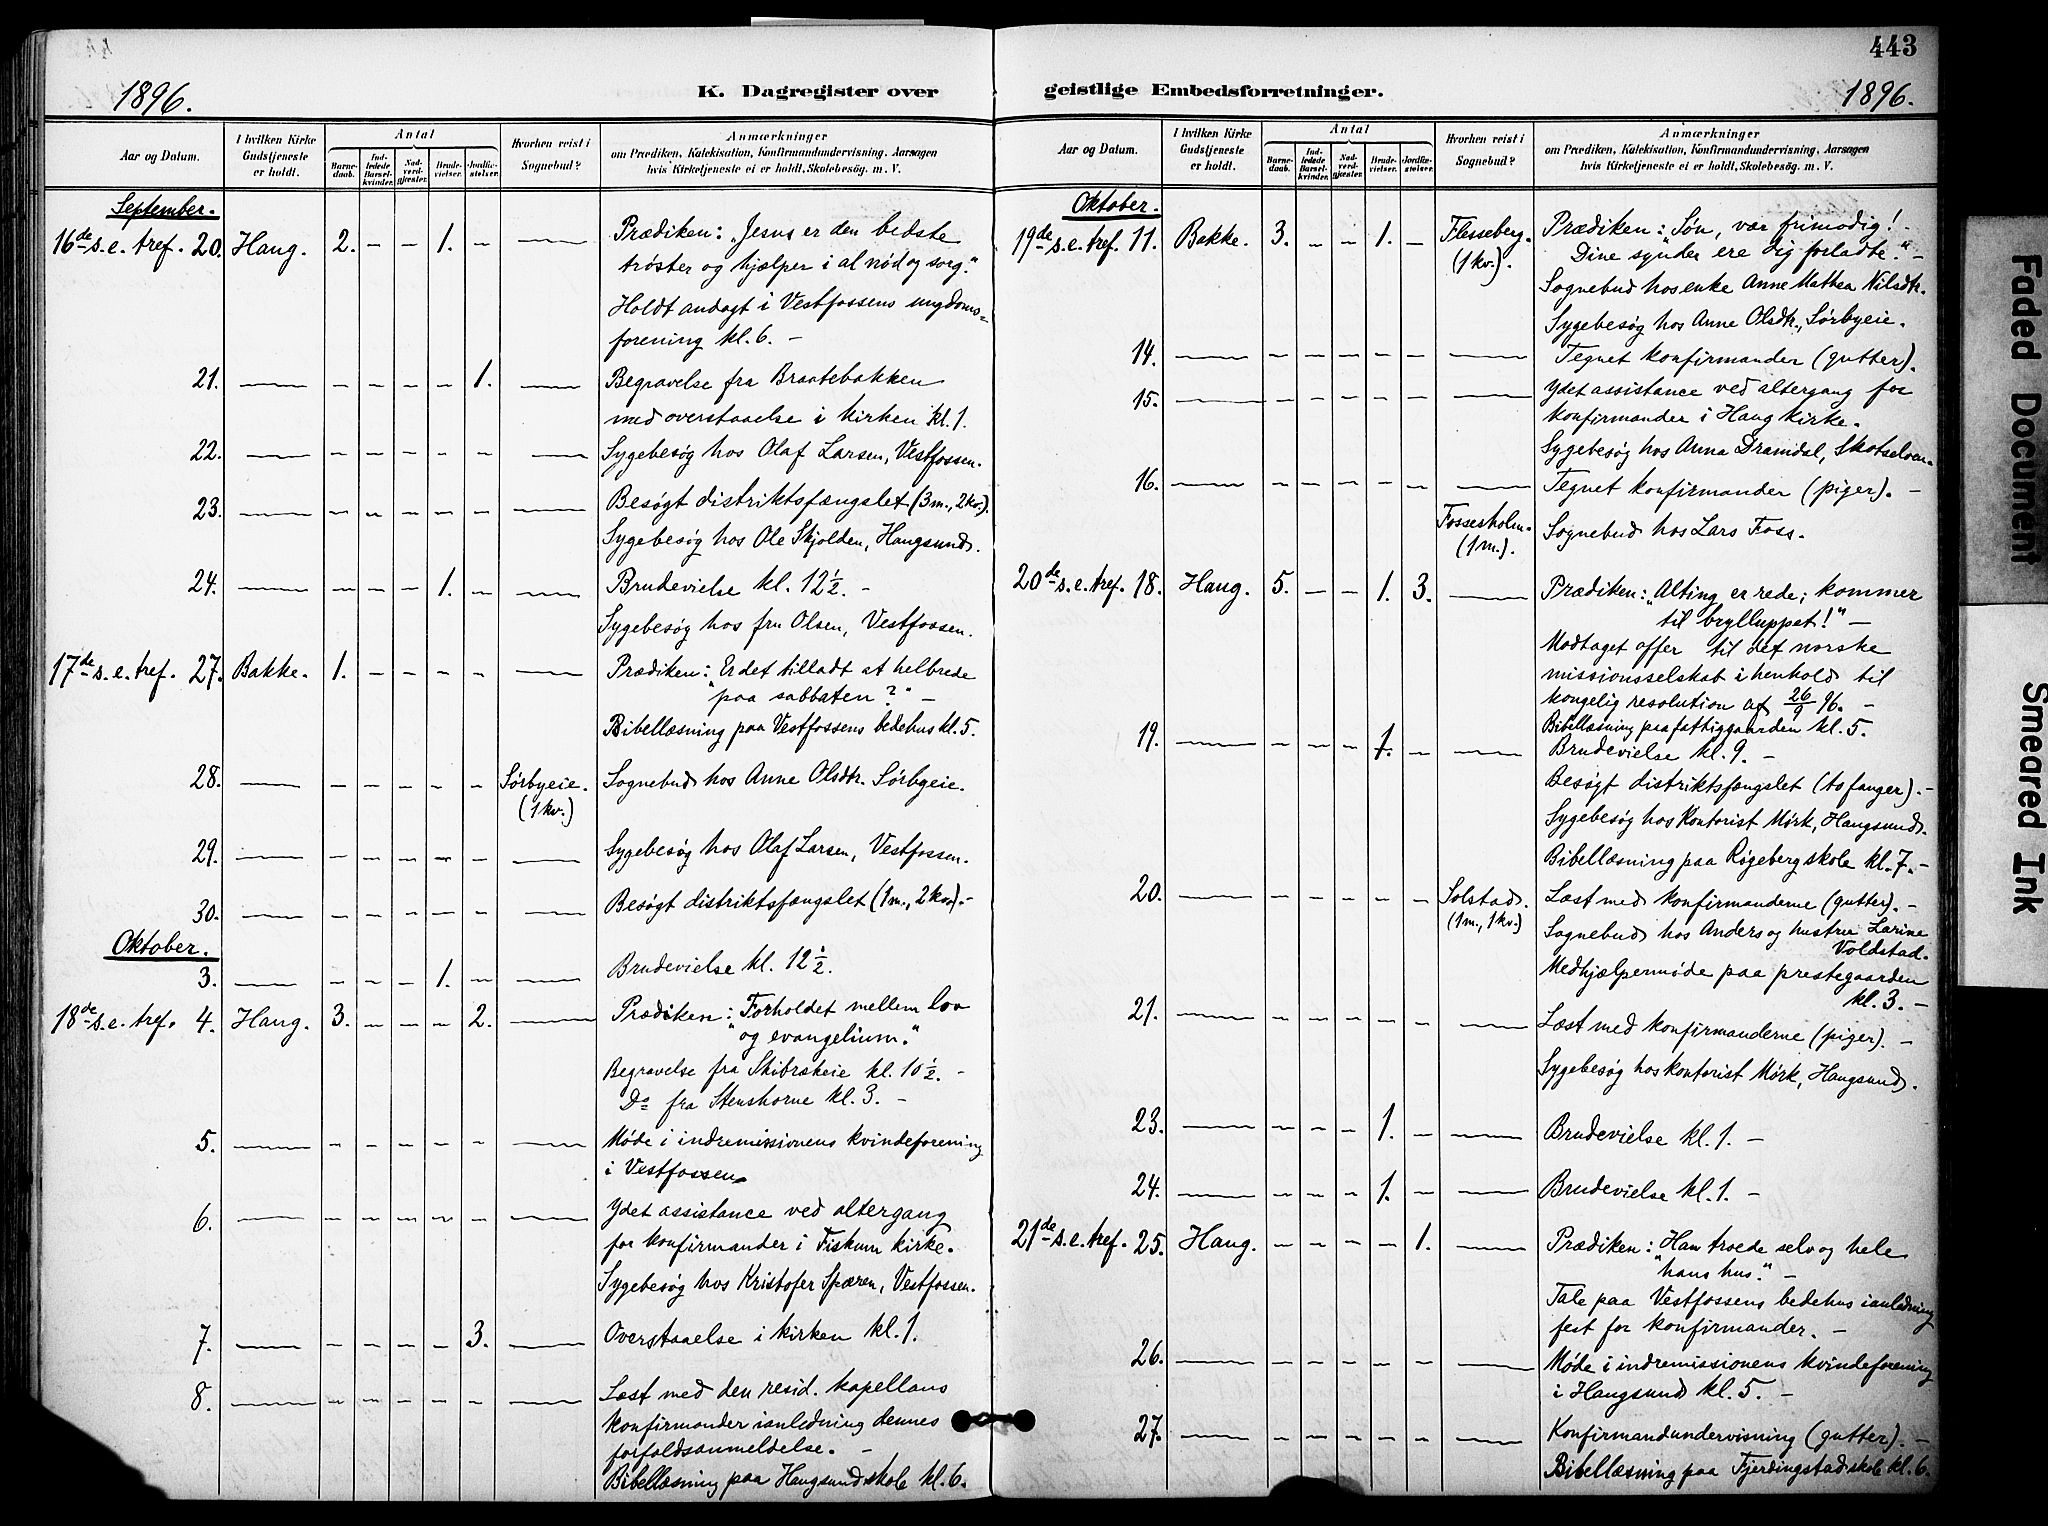 443
1896.
K. Dagregister over
Aar og Datum.
I hvilken Kirke Gudstjeneste er holdt.
Antal
Barnedaab.
Indledede Barselkvinder.
Nadverdgjester.
Brudevielser.
Jordfæstelser.
Hvorhen reist i Sognebud?
Anmærkninger
om Prædiken, Katekisation, Konfirmandundervisning, Aarsagen
hvis Kirketjeneste ei er holdt, Skolebesøg. m. V.
September.
16de s. e. tref. 20. Haug. 2. – – 1. – — Prædiken: „Jesus er den bedste
trøster og hjælper i al nød og sorg."
Holdt andagt i Vestfossens ungdoms-
forening kl. 6. –
21. — – – – – 1. — Begravelse fra Braatebakken
med overstaaelse i kirken kl. 1.
22. — – – – – – — Sygebesøg hos Olaf Larsen, Vestfossen.
23. — – – – – – — Besøgt distriktsfængslet (3 m., 2 kv.).
Sygebesøg hos Ole Skjolden, Haugsund.
24. — – – – 1. – — Brudevielse kl. 12 1/2. –
Sygebesøg hos fru Olsen, Vestfossen.
17de s. e. tref. 27. Bakke. 1. – – – – — Prædiken: „Er det tilladt at helbrede
paa sabbaten?" –
Bibellæsning paa Vestfossens bedehus kl. 5.
28. — – – – – – Sørbyeie. Sognebud hos Anne Olsdtr. Sørbyeie.
(1 kv.)
29. — – – – – – — Sygebesøg hos Olaf Larsen, Vestfossen.
30. — – – – – – — Besøgt distriktsfængslet (1 m., 2 kv.). –
Oktober.
3. — – – – 1. – — Brudevielse kl. 12 1/2.
18de s. e. tref. 4. Haug. 3. – – – 2. — Prædiken: „Forholdet mellem lov
og evangelium."
Begravelse fra Skibrækeie kl. 10 1/2. –
Do fra Stenshorne kl. 3. –
5. — – – – – – — Møde i indremissionens kvindeforening
i Vestfossen.
6. — – – – – – — Ydet assistance ved altergang
for konfirmander i Fiskum kirke.
Sygebesøg hos Kristofer Spæren, Vestfossen.
7. — – – – – 3. — Overstaaelse i kirken kl. 1.
8. — – – – – – — Læst med den resid. kapellans
konfirmander i anledning dennes
forfaldsanmeldelse. –
Bibellæsning paa Haugsund skole kl. 6.
geistlige Embedsforretninger.
1896.
Aar og Datum.
I hvilken Kirke Gudstjeneste er holdt.
Antal
Barnedaab.
Indledede Barselkvinder.
Nadverdgjester.
Brudevielser.
Jordfæstelser.
Hvorhen reist i Sognebud?
Anmærkninger
om Prædiken, Katekisation, Konfirmandundervisning, Aarsagen
hvis Kirketjeneste ei er holdt, Skolebesøg. m. V.
Oktober.
19de s. e. tref. 11. Bakke. 3. – – 1. – Flesseberg. Prædiken: „Søn, vær frimodig!
(1 kv.). Dine synder ere dig forladte." –
Sognebud hos enke Anne Mathea Nilsdtr.
Sygebesøg hos Anne Olsdtr., Sørbyeie.
14. — – – – – – — Tegnet konfirmander (gutter).
15. — – – – – – — Ydet assistance ved altergang for
konfirmander i Haug kirke.
Sygebesøg hos Anna Dramdal, Skotselven.
16. — – – – – – — Tegnet konfirmander (piger). –
Fossesholm. Sognebud hos Lars Foss.
(1 m.).
20de s. e. tref. 18. Haug. 5. – – 1. 3. — Prædiken: „Alting er rede; kommer
til brylluppet!" –
Modtaget offer til det norske
missionsselskab i henhold til
kongelig resolution af 26/9 96. –
Bibellæsning paa fattiggaarden kl. 5.
19. — – – – 1. – — Brudevielse kl. 9. –
Besøgt distriktsfængslet (to fanger). –
Sygebesøg hos Kontorist Mørk, Haugsund.
Bibellæsning paa Røgeberg skole kl. 7. –
20. — – – – – – Solstad. Læst med konfirmanderne (gutter). –
(1 m., 1 kv.) Sognebud hos Anders og hustru Larine
Voldstad.
Medhjælpermøde paa prestegaarden
kl. 3. –
21. — – – – – – — Læst med konfirmanderne (piger). –
Sygebesøg hos kontorist Mørk, Haugsund.
23. — – – – 1. – — Brudevielse kl. 1. –
24. — – – – 1. – — Brudevielse kl. 1. –
21de s. e. tref. 25. Haug. – – – – 1. — Prædiken: „Han troede selv og hele
hans hus." –
Tale paa Vestfossens bedehus i anledning
fest for konfirmander. –
26. — – – – – – — Møde i indremissionens kvindeforening
i Haugsund kl. 5. –
27. — – – – – – — Konfirmandundervisning (gutter). –
Bibellæsning paa Fjerdingstad skole kl. 6.
Faded Document
Smeared Ink